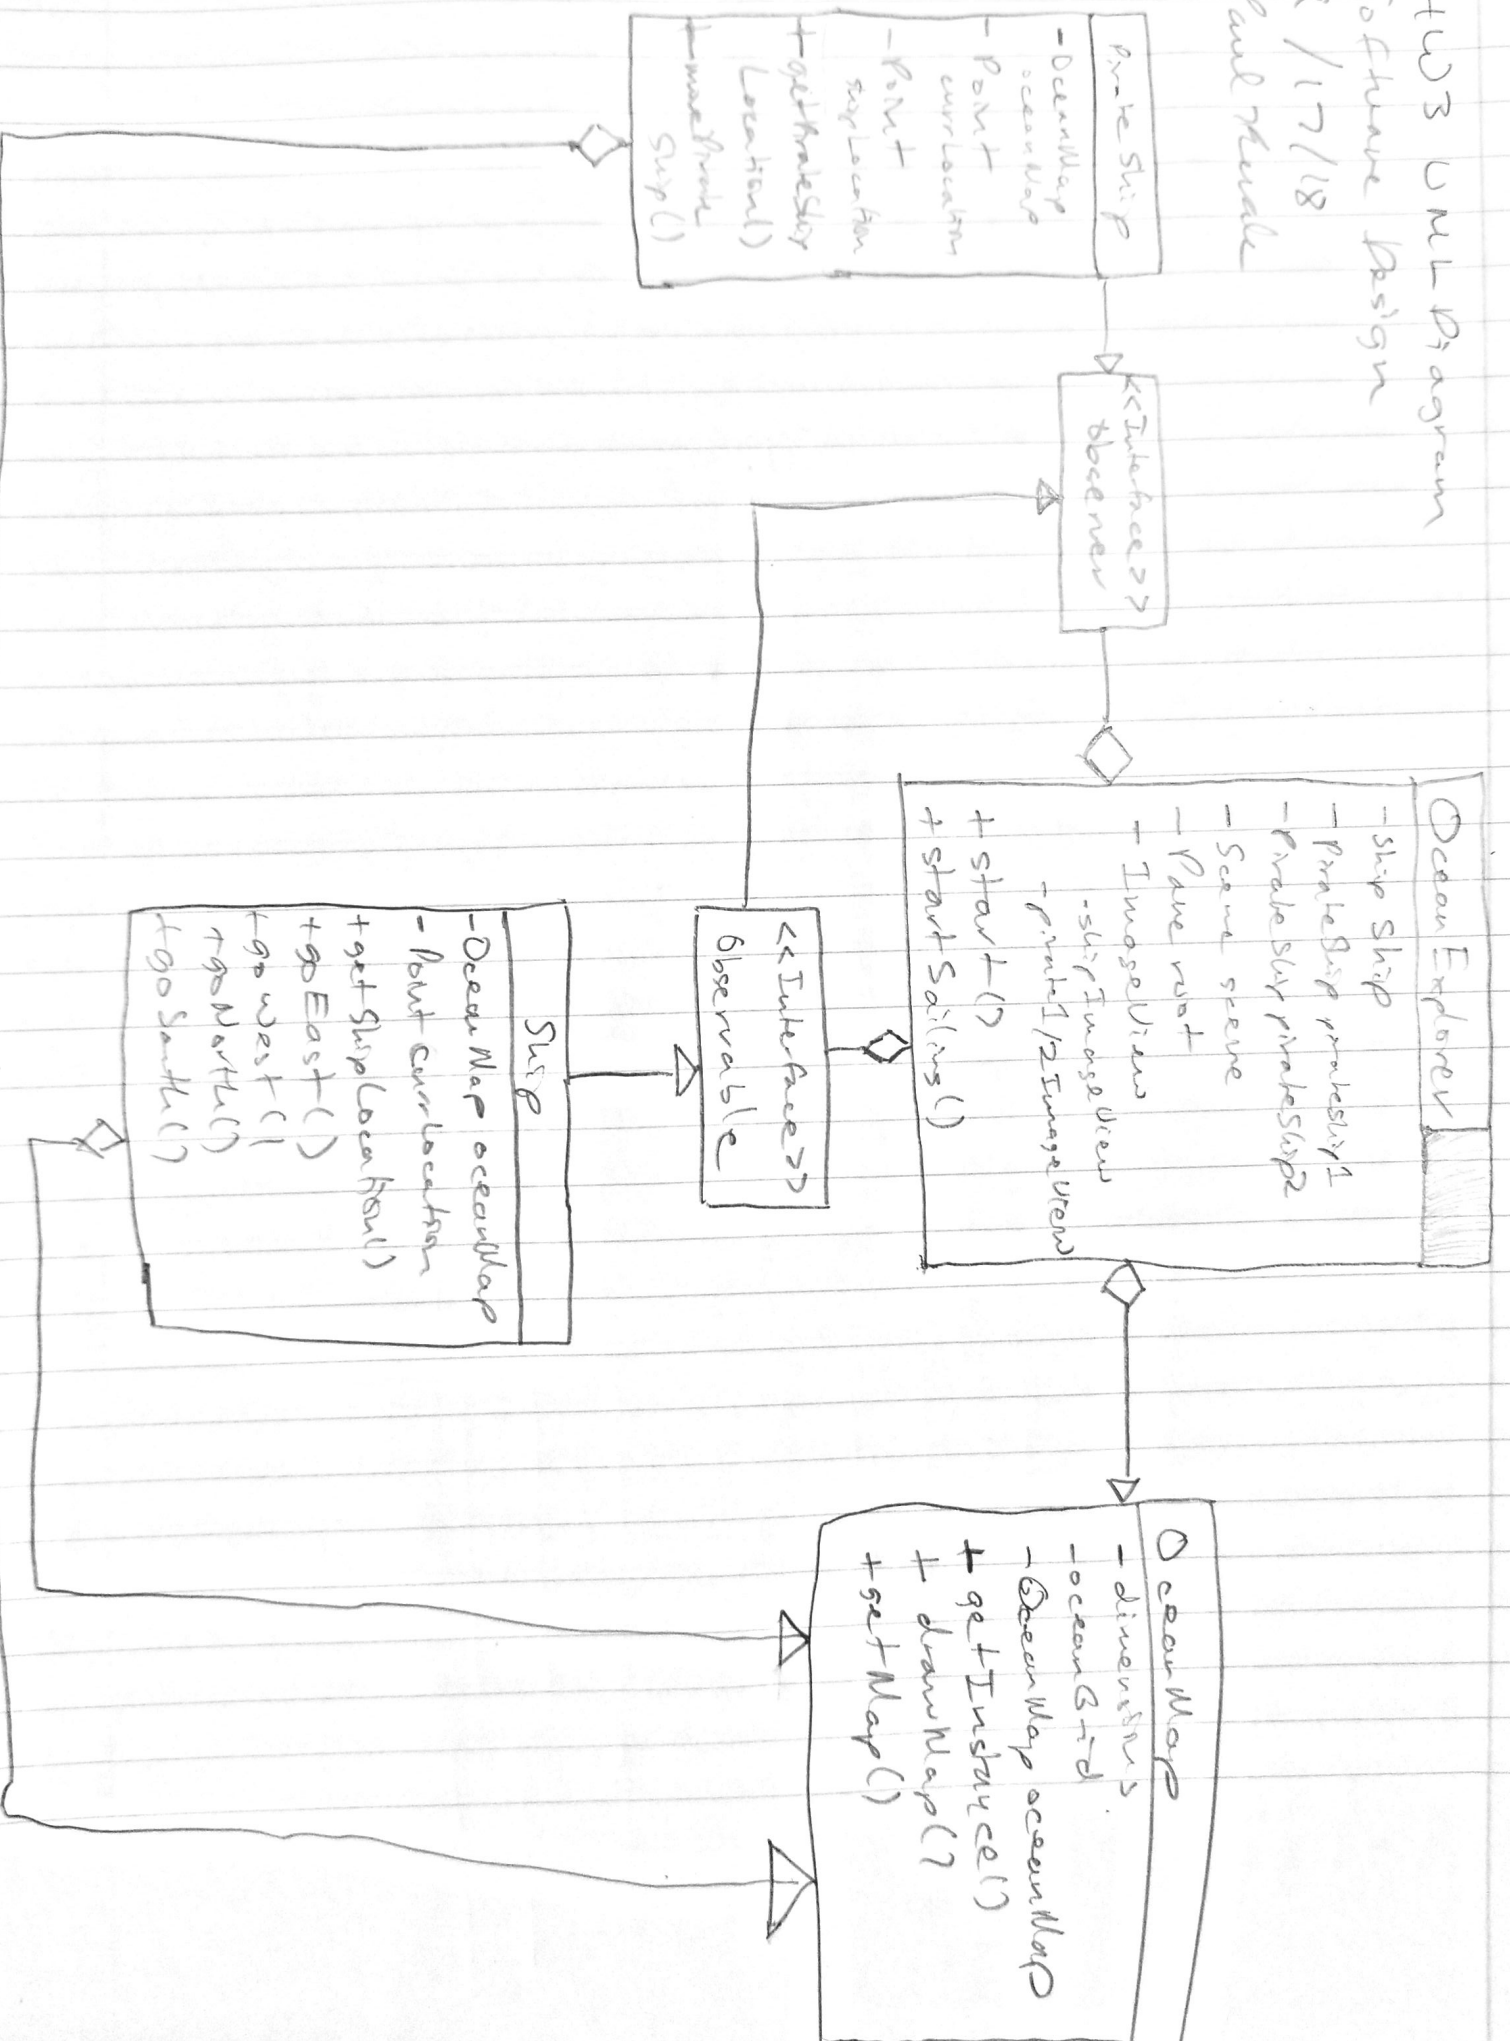 HW3 UML Diagram
Software Design
/17/18
Paul
Pirate Ship
-OceanMap
oceanMap
-Point
currLocation
-Point
shipLocation
+getPirateShip
Location()
+movePirate
Ship()
<<Interface>>
Observer
OceanExplorer
-Ship Ship
-PirateShip pirateship1
-PirateShip pirateShip2
-Scene scene
-Pane root
-ImageView
-shipImageView
-pirate1/2ImageView
+start()
+startSailing()
<<Interface>>
Observable
Ship
-OceanMap oceanMap
-Point currLocation
+getShipLocation()
+goEast()
+goWest()
+goNorth()
+goSouth()
OceanMap
-dimensions
-oceanGrid
-OceanMap oceanMap
+getInstance()
+drawMap()
+getMap()